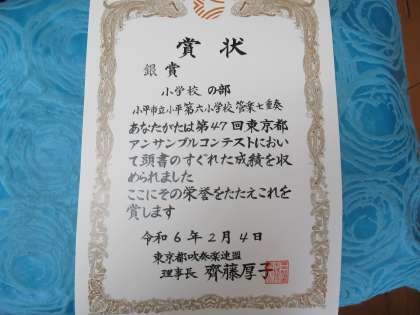 賞状
銀賞
小学校 の部
小平市立小平第六小学校 管楽七重奏
あなたがたは第47回東京都
アンサンブルコンテストにおい
て頭書のすぐれた成績を収
められました
ここにその栄誉をたたえこれを
賞します
令和6年2月4日
東京都吹奏楽連盟
理事長 齊藤厚子